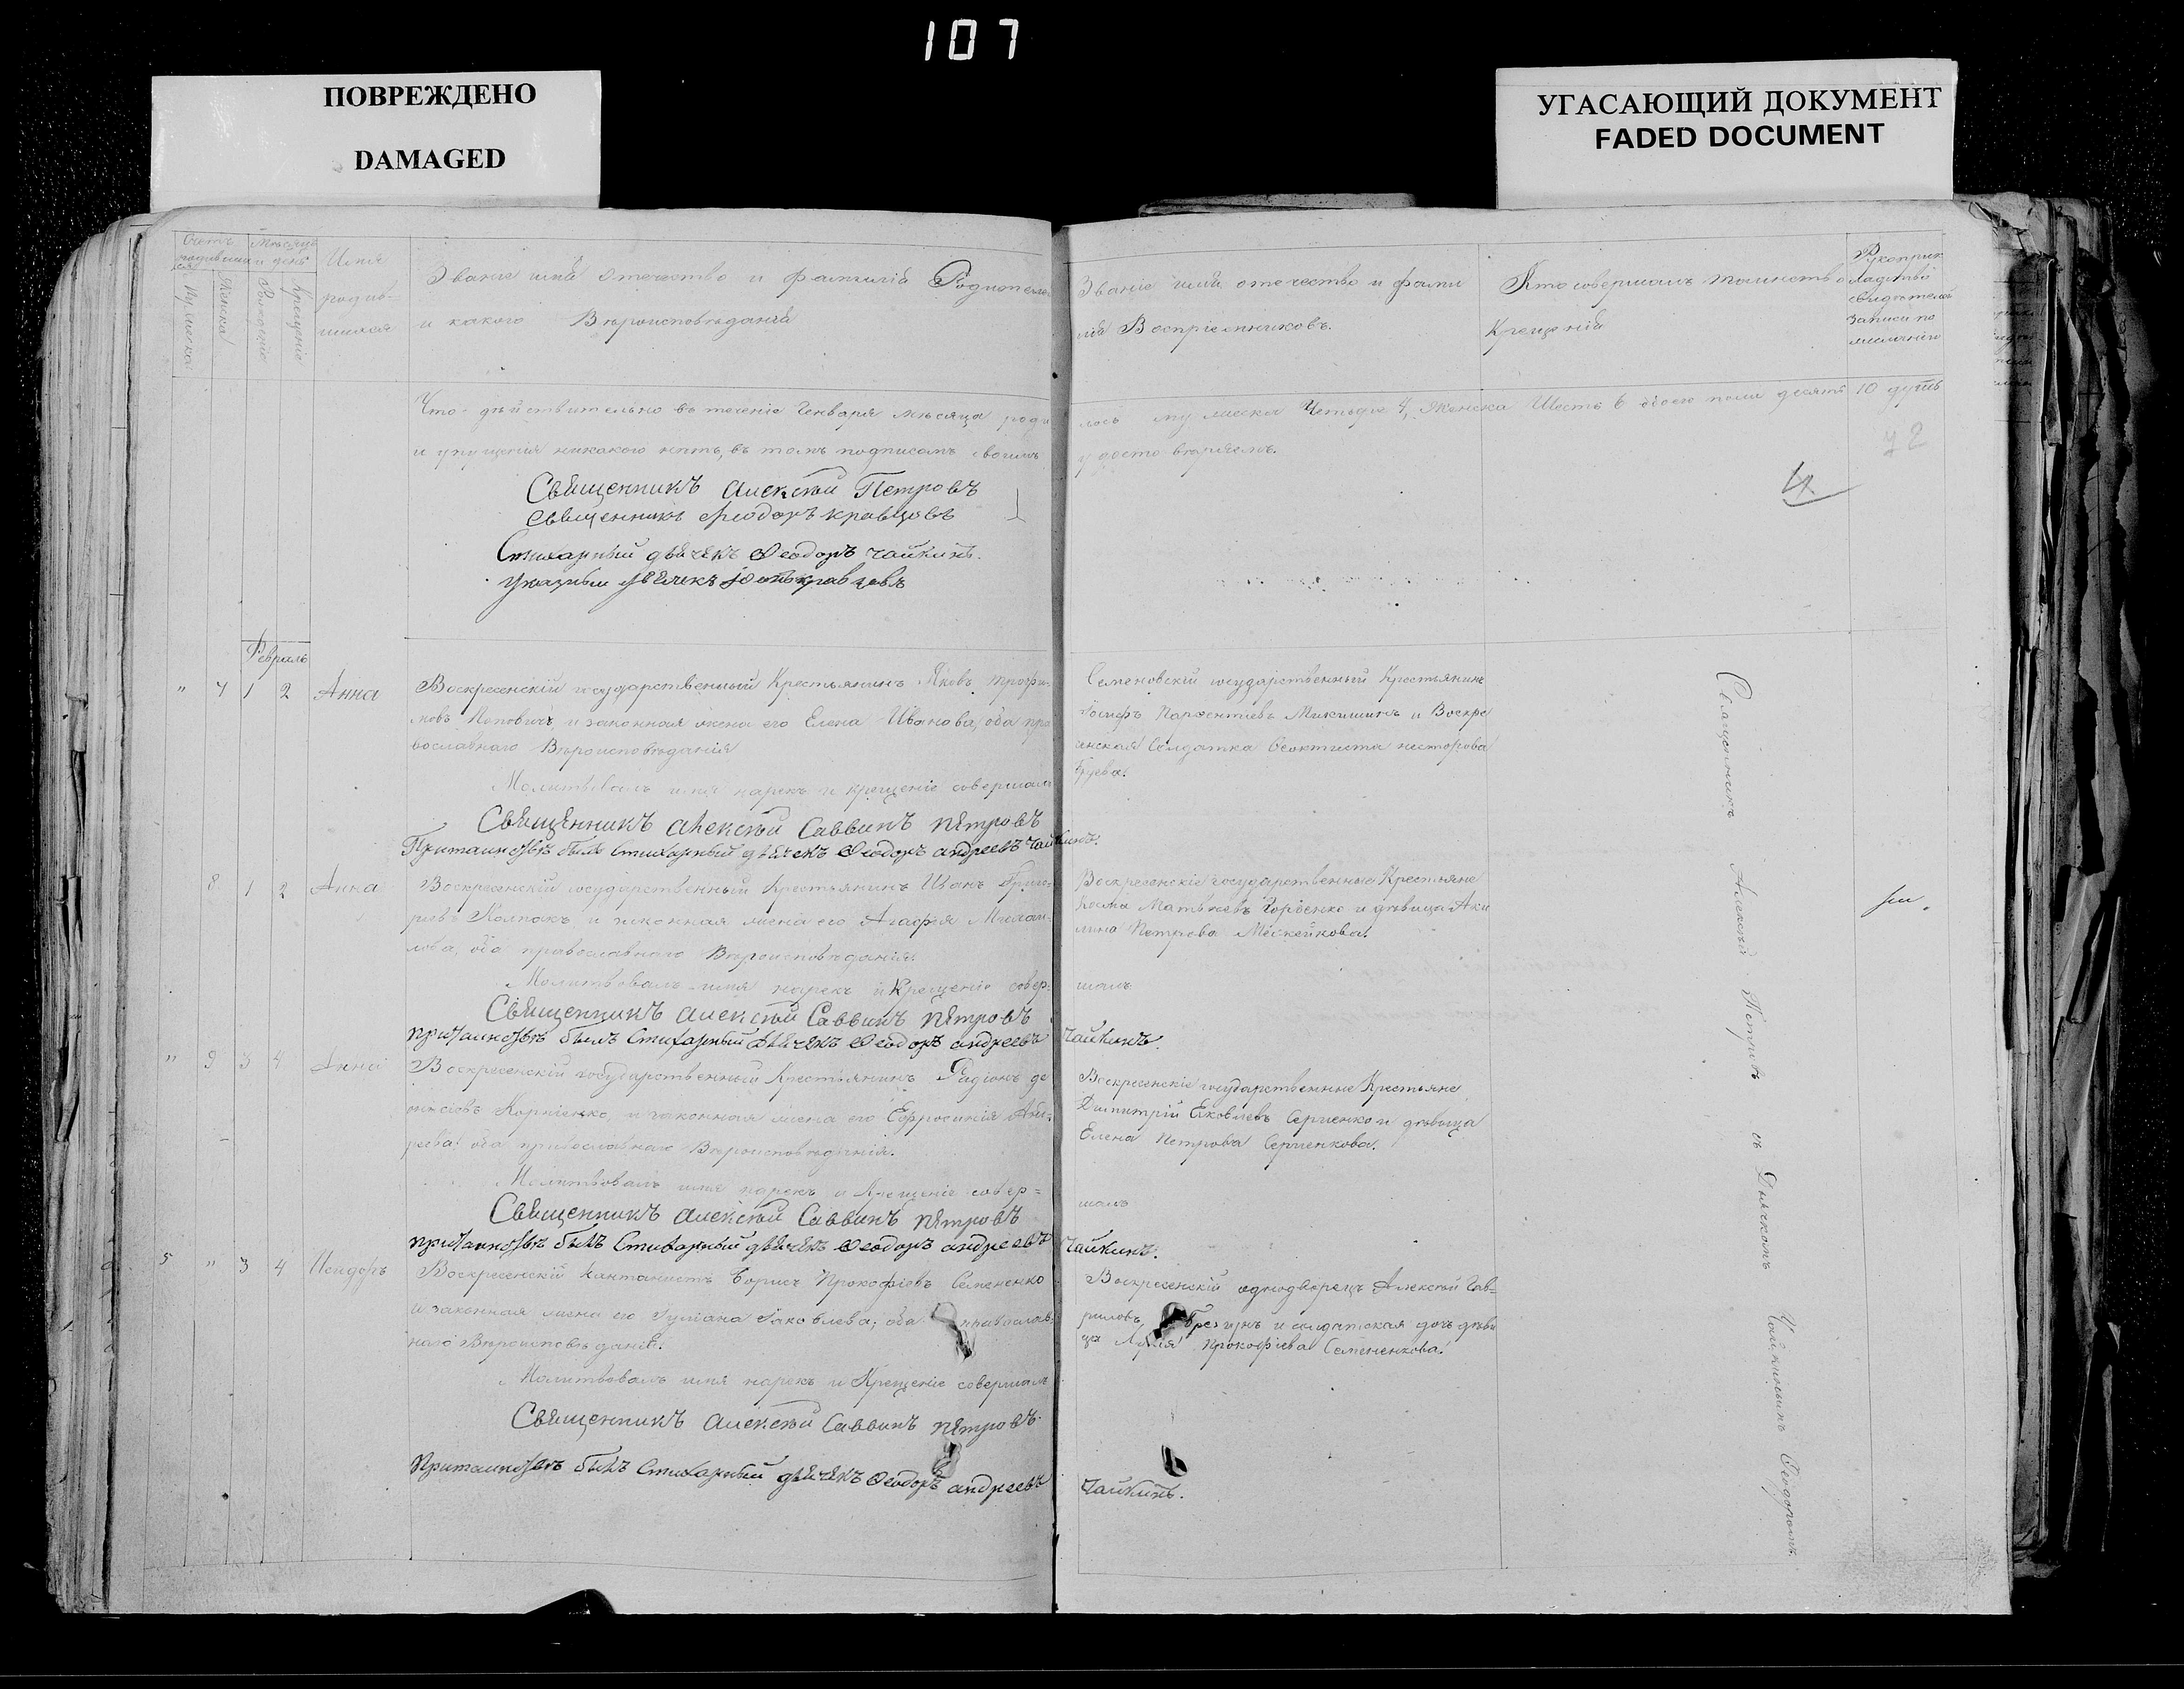 107
ПОВРЕЖДЕНО
DAMAGED
УГАСАЮЩИЙ ДОКУМЕНТ
FADED DOCUMENT
Счетъ родившихся
Мужеска
Женска
Мѣсяцъ и день
Рожденіе
Крещеніе
Имя
родив-
шихся
Званіе имя отечество и фамилія Родителей
и какого Вѣроисповѣданія
Званіе имя, отечество и фами
лія Воспріемниковъ.
Кто совершалъ таинство
Крещенія
Рукоприк
ладство
свидѣтелей
записи по
желанію
Что дѣйствительно въ теченіе Генваря мѣсяца роди
лось мужеска Четыре 4, Женска Шесть 6 обоего пола десять 10 душъ
и упущенія никакого нетъ, въ томъ подписомъ своимъ
удостовѣряемъ.
72
Священникъ Алексѣй Петровъ
Священникъ Феодоръ Кравцовъ
Стихарный дьячекъ Феодоръ Чайкинъ.
Указный дьячекъ Кравцовъ
Февраль
" 7 1 2 Анна
Воскресенскій государственный Крестьянинъ Яковъ Трофи
мовъ Поповичъ и законная жена его Елена Иванова, оба пра
вославнаго Вѣроисповѣданія
Молитвовалъ имя нарекъ и крещеніе совершалъ
Священникъ Алексѣй Саввинъ Петровъ
При таинствѣ былъ Стихарный дьячекъ Феодоръ Андреевъ Чайкинъ.
Семеновскій государственный Крестьянинъ
Іосифъ Парфентіевъ Микишинъ и Воскре
сенская Солдатка Феоктиста Несторова
8 1 2 Анна
Воскресенскій государственный Крестьянинъ Иванъ Григо
рьевъ Колпакъ и законная жена его Агафія Михаи
лова, оба православнаго Вѣроисповѣданія.
Молитвовалъ имя нарекъ и Крещеніе совер-
шалъ
Священникъ Алексѣй Саввинъ Петровъ
При таинствѣ былъ Стихарный дьячекъ Феодоръ Андреевъ
Чайкинъ.
Воскресенскіе государственные Крестьяне
Косма Матвѣевъ Горбенко и дѣвица Аки
лина Петрова
" 9 3 4 Анна
Воскресенскій государственный Крестьянинъ Радіонъ де
онисіовъ Корніенко и законная жена его Ефросинія Анд
реева оба православнаго Вѣроисповѣданія.
Молитвовалъ имя нарекъ и Крещеніе совер-
шалъ
Священникъ Алексѣй Саввинъ Петровъ
При таинствѣ былъ Стихарный дьячекъ Феодоръ Андреевъ
Чайкинъ.
Воскресенскіе государственные Крестьяне
Димитрій Яковлевъ Сергіенко и дѣвица
Елена Петрова Сергіенкова.
5 " 3 4 Исидоръ
Воскресенскій Кантанистъ Борисъ Прокофіевъ Семененко
и законная жена его Іуліана Яковлева; оба православ
наго Вѣроисповѣданія.
Молитвовалъ имя нарекъ и Крещеніе совершалъ
Священникъ Алексѣй Саввинъ Петровъ
При таинствѣ былъ Стихарный дьячекъ Феодоръ Андреевъ
Чайкинъ.
Воскресенскій однодворецъ Алексѣй Гав-
риловъ и солдатская дочь дѣви
ца Прокофіева Семененкова.
Священникъ Алексѣй Петровъ съ Дьячкомъ Чайкинымъ Феодоромъ.